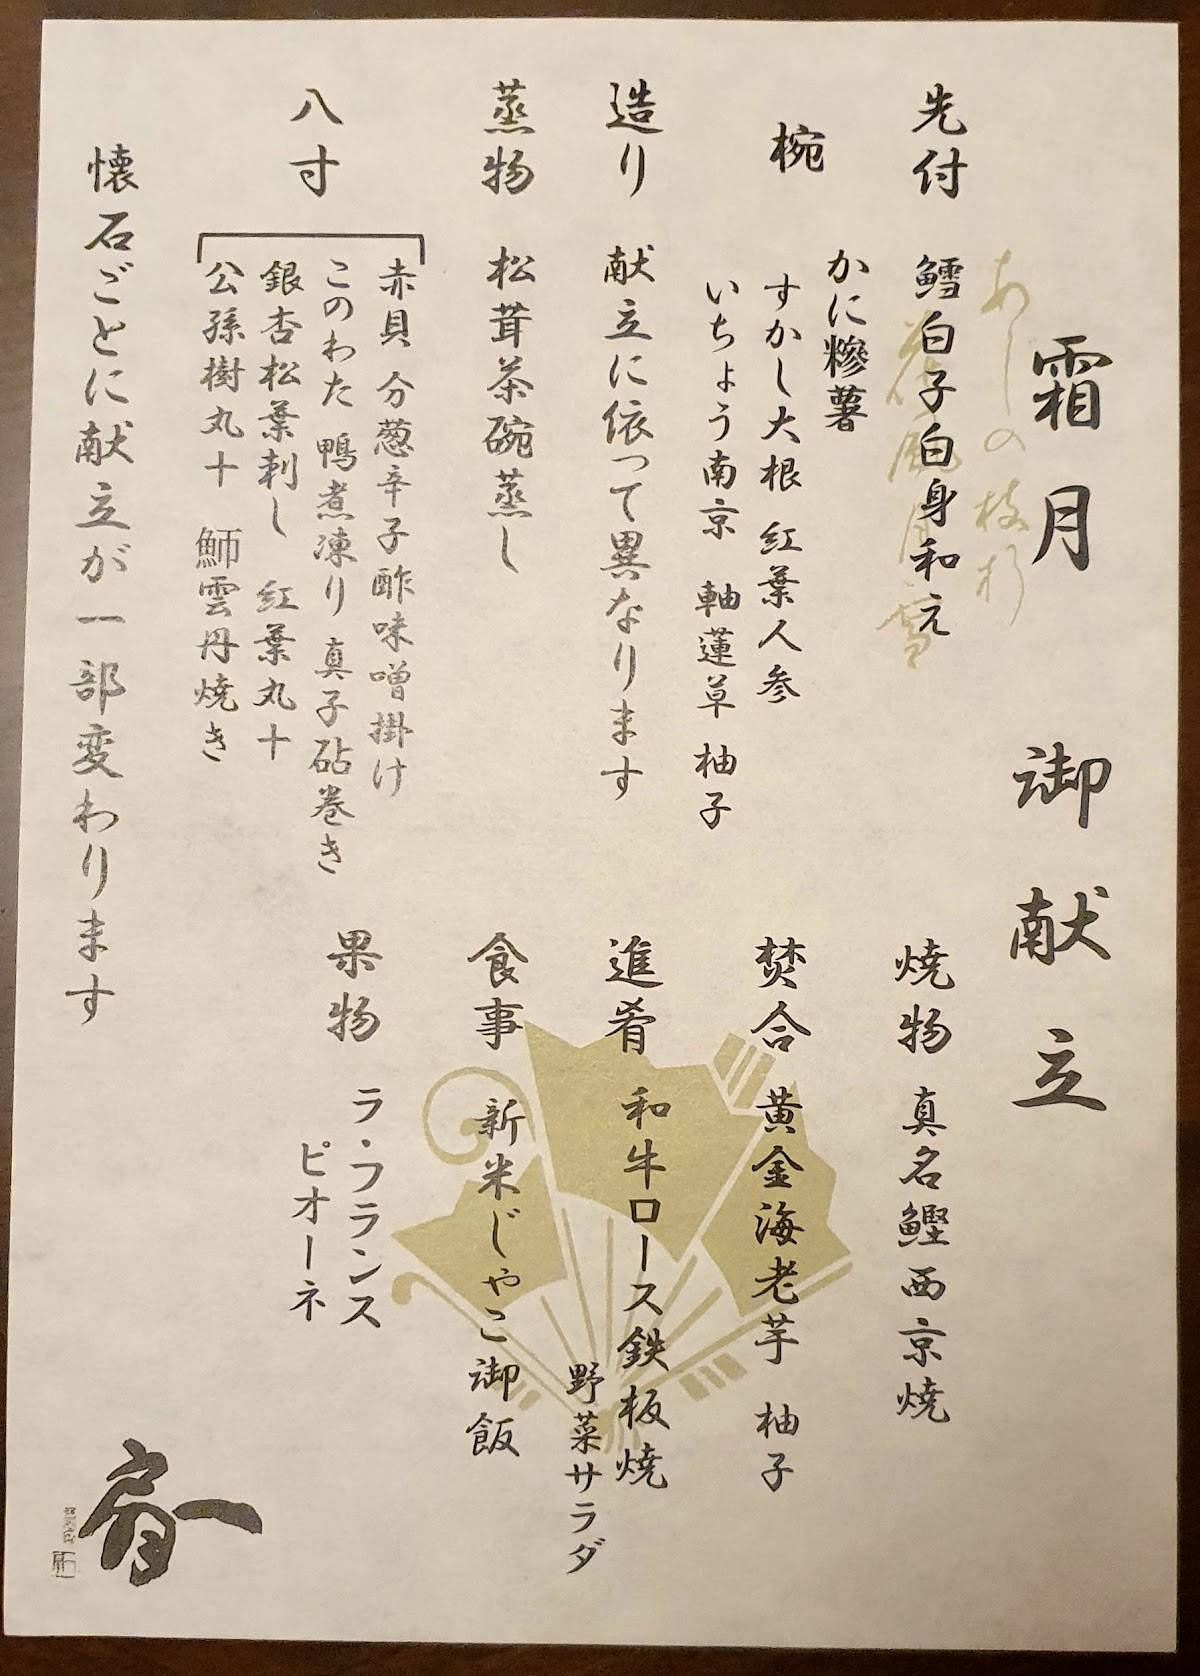 霜月 御献立
先付 鱈白子白身和え
椀 かに糝薯
すかし大根 紅葉人参
いちょう南京 軸蓮草 柚子
造り 献立に依って異なります
蒸物 松茸茶碗蒸し
八寸
赤貝 分葱辛子酢味噌掛け
このわた 鴨煮凍り 真子砧巻き
銀杏松葉刺し 紅葉丸十
公孫樹丸十 鰤雲丹焼き
懐石ごとに献立が一部変わります
焼物 真名鰹西京焼
焚合 黄金海老芋 柚子
進肴 和牛ロース鉄板焼
野菜サラダ
食事 新米じゃこ御飯
果物 ラ・フランス
ピオーネ
扇